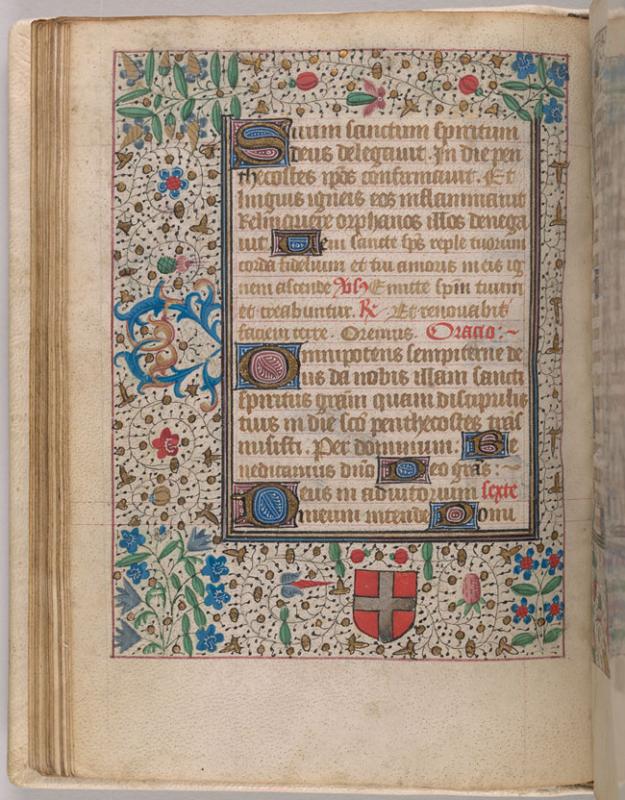 Suum sanctum spiritum
deus delegavit. In die pen
thecostes apłos confirmavit. Et
linguis igneis eos inflammavit
Relinquere orphanos illos denega
vit. Ueni sancte sps reple tuorum
corda fidelium et tui amoris in eis ig
nem ascende Vs Emitte spm tuum
et creabuntur. R Et renovabis
faciem terre. Oremus. Oracio:~
Omnipotens sempiterne de
us da nobis illam sancti
spiritus gram quam discipulis
tuis in die sco penthecostes tras
misisti. Per dominum: Be
nedicamus dno Deo gras:~
Deus in adiutorium sexte
meum intende Domi